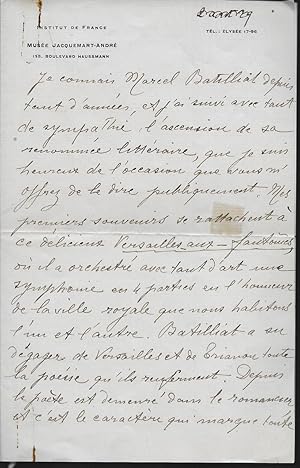 INSTITUT DE FRANCE
MUSÉE JACQUEMART-ANDRÉ
158, BOULEVARD HAUSSMANN
TÉL. : ÉLYSÉE 17-96
Je connais Marcel Batilliat depuis
tant d'années, et j'ai suivi avec tant
de sympathie l'ascension de sa
renommée littéraire, que je suis
heureux de l'occasion que vous m'
offrez de le dire publiquement. Mes
premiers souvenirs se rattachent à
ce délicieux Versailles-aux-fantômes
où il a orchestré avec tant d'art une
symphonie en 4 parties en l'honneur
de la ville royale que nous habitons
l'un et l'autre. Batilliat a su
dégager de Versailles et de Trianon toute
la poésie qu'ils renferment. Depuis
le poète est demeuré dans le romancier
et c'est le caractère qui marque toute